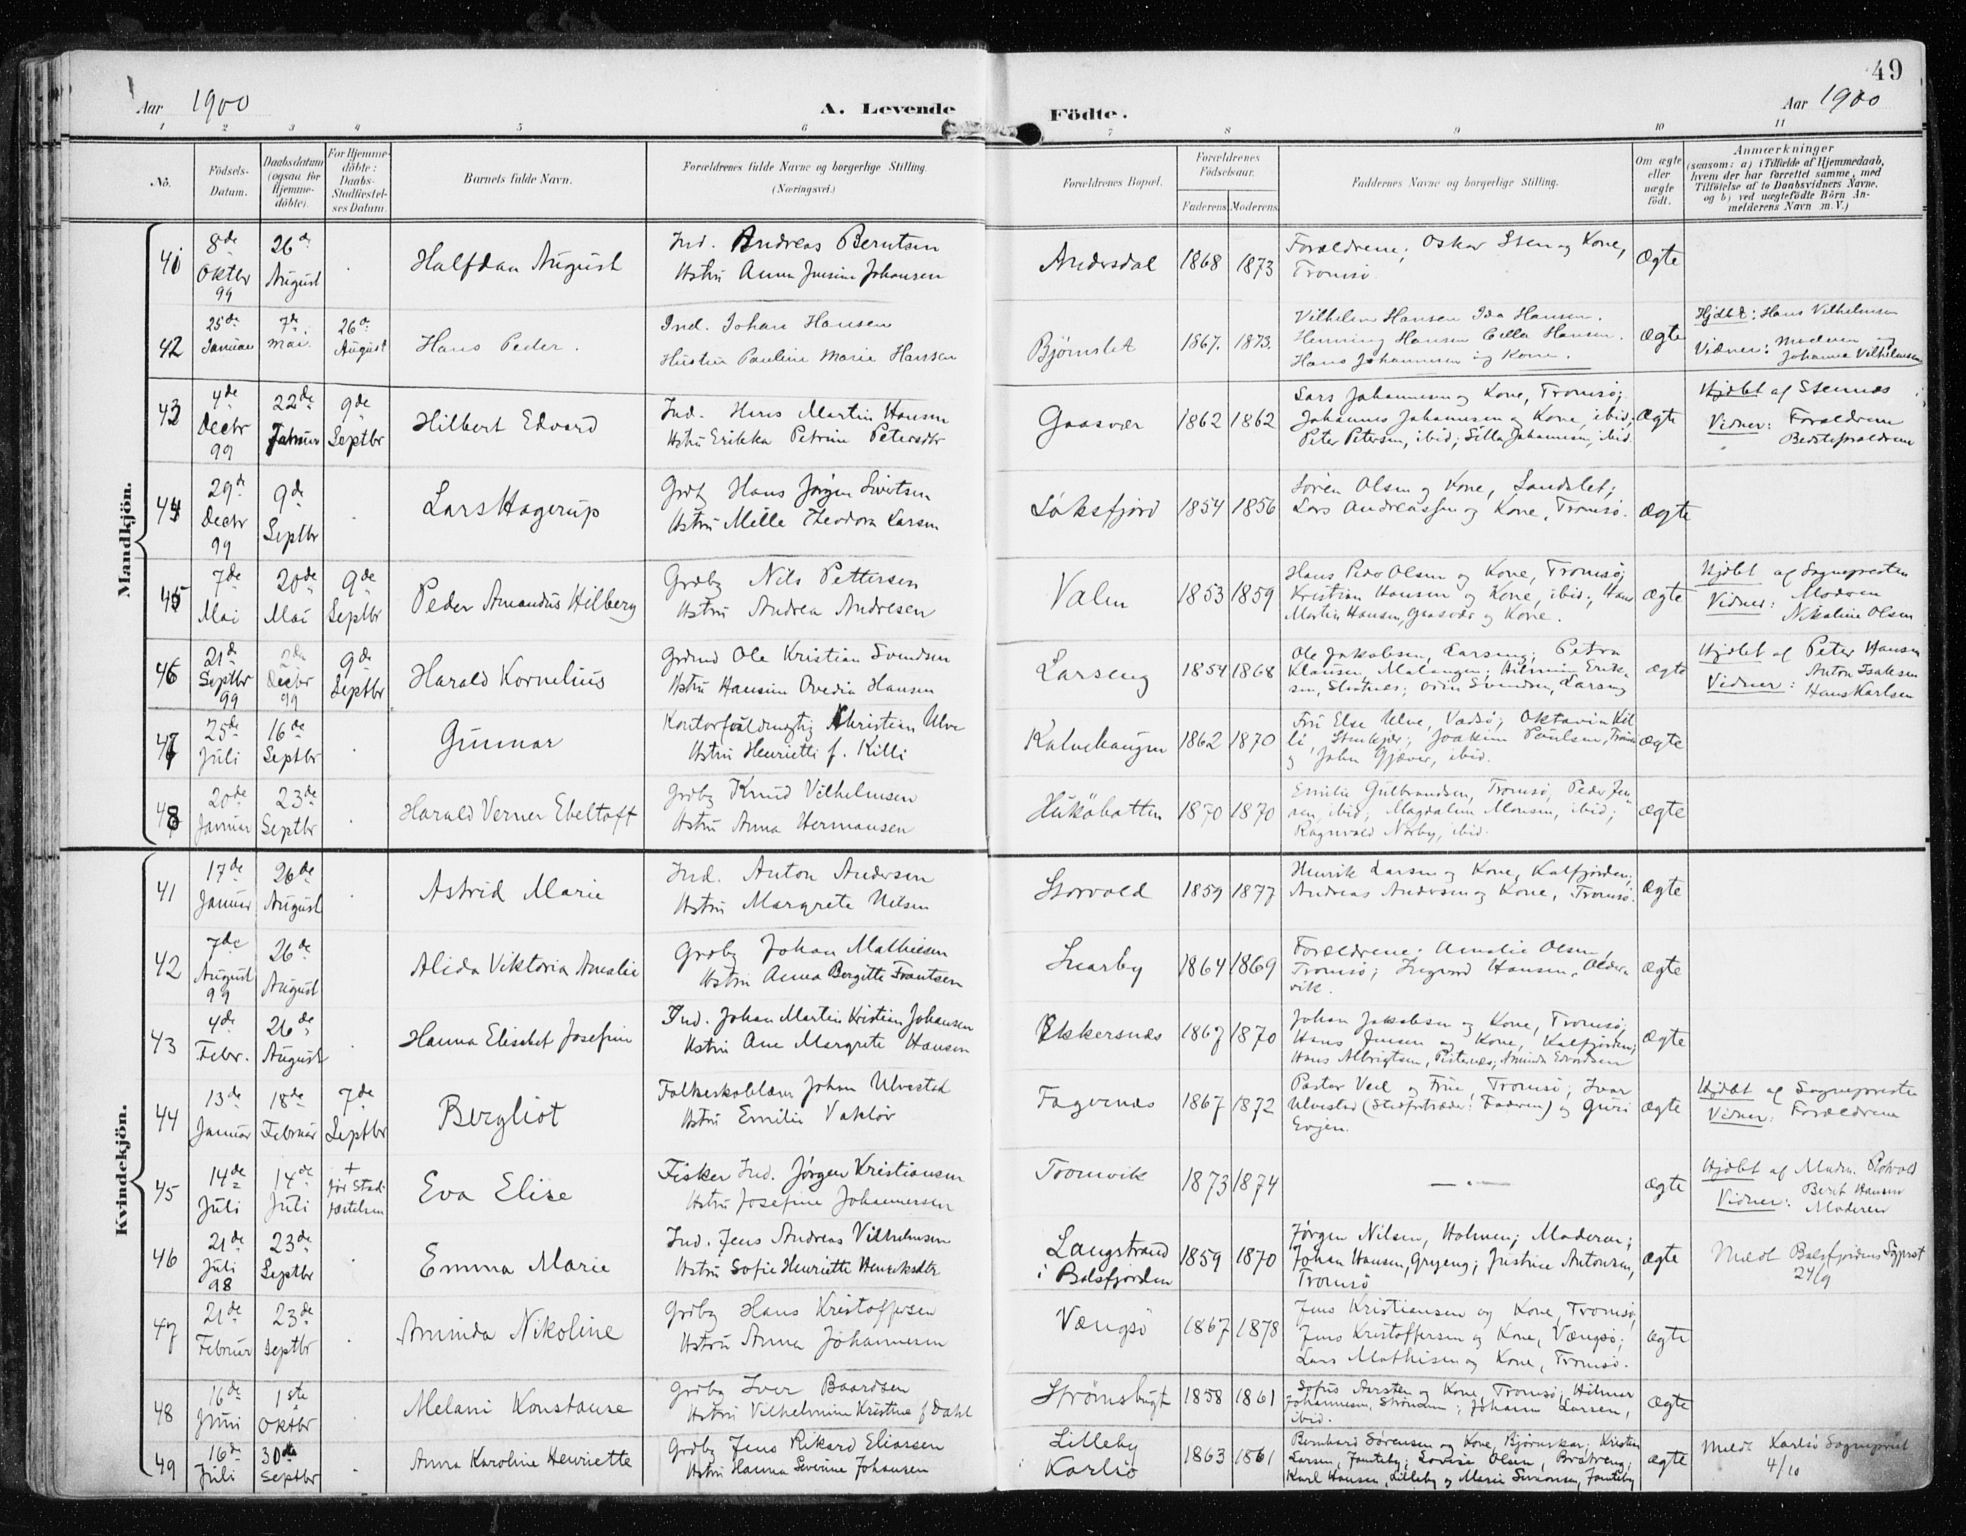 49
Aar 1900
A. Levende
Födte.
Aar 1900
1 2 3 4 5 6 7 8 9 10 11
No.
Födsels-
Datum.
Daabsdatum
(ogsaa for
Hjemme-
döbte).
For Hjemme-
döbte:
Daabs-
Stadfæstel-
ses Datum.
Barnets fulde Navn.
Forældrenes fulde Navne og borgerlige Stilling.
(Næringsvei.)
Forældrenes Bopæl.
Forældrenes
Födselsaar.
Faderens. Moderens.
Faddernes Navne og borgerlige Stilling.
Om ægte
eller
uægte
födt.
Anmærkninger
(saasom: a) i Tilfælde af Hjemmedaab,
hvem der har forrettet samme, med
Tilföielse af to Daabsvidners Navne,
og b) ved uægtefödte Börn An-
melderens Navn m. V.)
Mandkjön.
41
8de
Oktbr
99
26de
August
Halfdan August
Ind. Andreas Berntsen
Hstru Anna Jusine Johansen
Andersdal
1868 1873
Forældrene; Oskar Steen og Kone,
Tromsø
Ægte
42
25de
Januar
7de
Mai.
26de
August
Hans Peder.
Ind. Johan Hansen
Hustru Pauline Marie Hansen
Bjørnslet
1867. 1873.
Vilhelm Hansen Ida Hansen.
Henning Hansen Cella Hansen.
Hans Johannesen og Kone.
Ægte
Hjdbt: Hans Vilhelmsen
Vidner: Moderen og
Johanna Vilhelmsen
43
4de
Decbr
99
22de
Februar
9de
Septbr
Hilbert Edvard
Ind. Hans Martin Hansen
Hstru Erikka Petrine Petersdtr
Gaasvær
1862 1862
Lars Johannesen og Kone, Tromsø;
Johannes Johannesen og Kone, ibid;
Peter Petersen, ibid; Silla Johannesen, ibid
Ægte
Hjdbt af Stennæs
Vidner: Forældrene
Bedsteforældrene
44
29de
Decbr
99
9de
Septbr
Lars Hagerup
Grdb Hans Jørgen Sivertsen
Hstru Mille Theodora Larsen
Laksfjord
1854 1856
Søren Olsen og Kone, Sandslet;
Lars Andreassen og Kone, Tromsø.
Ægte
45
7de
Mai
20de
Mai
9de
Septbr
Peder Amandus Hilberg
Grdbr Nils Pettersen
Hstru Andrea Andresen
Valen
1853 1859
Hans Peder Olsen og Kone, Tromsø;
Kristian Hansen og Kone, ibid; Hans
Martin Hansen, Gaasvær og Kone.
Ægte
Hjdbt af Sognepresten
Vidner: Moderen
Nikoline Olsen
46
21de
Septbr
99
2den
Decbr
99
9de
Septbr
Harald Kornelius
Grdmd Ole Kristian Svendsen
Hstru Hansine Ovedia Hansen
Larseng
1854 1868
Ole Jakobsen, Larseng; Petra
Klausen, Malangen; Hilmine Erik-
sen, Slutnes; Svendsen, Larseng
Ægte
Hjdbt af Peter Hansen
Vidner: Anton Isaksen
Hans Karlsen
47
25de
Juli
16de
Septbr
Gunnar
Kontorfuldmægtig Christian Ulve
Hstru Henriette f. Killi
Kalvehaugen
1862 1870
Fru Else Ulve, Vadsø; Oktavia Kil-
li, Stenkjær; Joakim Paulsen, Tromsø
og John Gjæver, ibid.
Ægte
48
20de
Januar
23de
Septbr
Harald Verner Ebeltoft
Grdbr Knud Vilhelmsen
Hstru Anna Hermansen
Hukøbatten
1870 1870
Emilie Gulbrandsen, Tromsø; Peder Jen-
sen, ibid; Magdalene Monsen, ibid;
Ragnvald Norby, ibid.
Ægte
Kvindekjön.
41
17de
Januar
26de
August
Astrid Marie
Ind. Anton Andersen
Hstru Margrete Nilsen
Storvold
1859 1877
Henrik Larsen og Kone, Kalfjorden;
Andreas Andersen og Kone, Tromsø.
Ægte
42
7de
August
99
26de
August
Alida Viktoria Amalie
Grdbr Johan Mathisen
Hstru Anna Bergitte Frantsen
Snarby
1864 1869
Forældrene; Amalie Olsen,
Tromsø; Ingvard Hansen, Older-
vik.
Ægte
43
4de
Febr.
26de
August
Hanna Elisebet Josefine
Ind. Johan Martin Kristian Johansen
Hstru Ane Margrete Hansen
Ekkersnæs
1867 1870
Johan Jakobsen og Kone, Tromsø,
Hans Jensen og Kone, Kalfjorden;
Hans Albrigtsen, Pettersnes; Aminda Edvardsen
Ægte
44
13de
Januar
18de
Februar
7de
Septbr
Bergliot
Folkeskolelærer Johan Ulvestad
Hstru Emilie Vaktør
Fagernæs
1867 1872
Pastor Veel og Frue, Tromsø; Ivar
Ulvestad (Stedfortræder: Faderen) og Guri
Evjen.
Ægte
Hjdbt af Sognepresten
Vidner: Forældrene
45
14de
Juli
14de
Juli
+
før Stad-
fæstelsen
Eva Elise
Fisker Ind. Jørgen Kristiansen
Hstru Josefine Johannessen
Tromvik
1873 1874
— " —
Ægte
Hjdbt af Madm. Rotvold
Vidner: Berit Hansen
Moderen
46
21de
Juli
98
23de
Septbr
Emma Marie
Ind. Jens Andreas Vilhelmsen
Hstru Sofie Henriette Henriksdtr
Langstrand
i Balsfjorden
1859 1870
Jørgen Nilsen, Holmen; Moderen;
Johan Hansen, Grøeng; Justine Antonsen,
Tromsø
Ægte
Meldt Balsfjordens Sgprst
24/9
47
21de
Februar
23de
Septbr
Aminda Nikoline
Grdbr Hans Kristoffersen
Hstru Anna Johannesen
Vængsø
1867 1878
Jens Kristiansen og Kone, Tromsø,
Jens Kristoffersen og Kone, Vængsø;
Lars Mathisen og Kone, Tromsø.
Ægte
48
16de
Juni
1ste
Oktbr
Melani Konstanse
Grdbr Iver Baardsen
Hstru Vilhelmine Kristine f Dahl
Strømsbugt
1858 1861
Sofus Aarsten og Kone, Tromsø; Hilmar
Johannesen, Strømmen; Johanna Larsen,
ibid.
Ægte
49
16de
Juli
30de
Septbr
Anna Karoline Henriette
Grdbr Jens Rikard Eliassen
Hstru Hanna Severine Johansen
Lilleby
Karlsø
1863 1861
Bernhard Sørensen og Kone, Bjørnskar; Kristian
Larsen, Jamteby; Lovise Olsen, Bratreng;
Karl Hansen, Lilleby og Marie Simonsen, Jamteby
Ægte
Meldt Karlsø Sogneprest
4/10